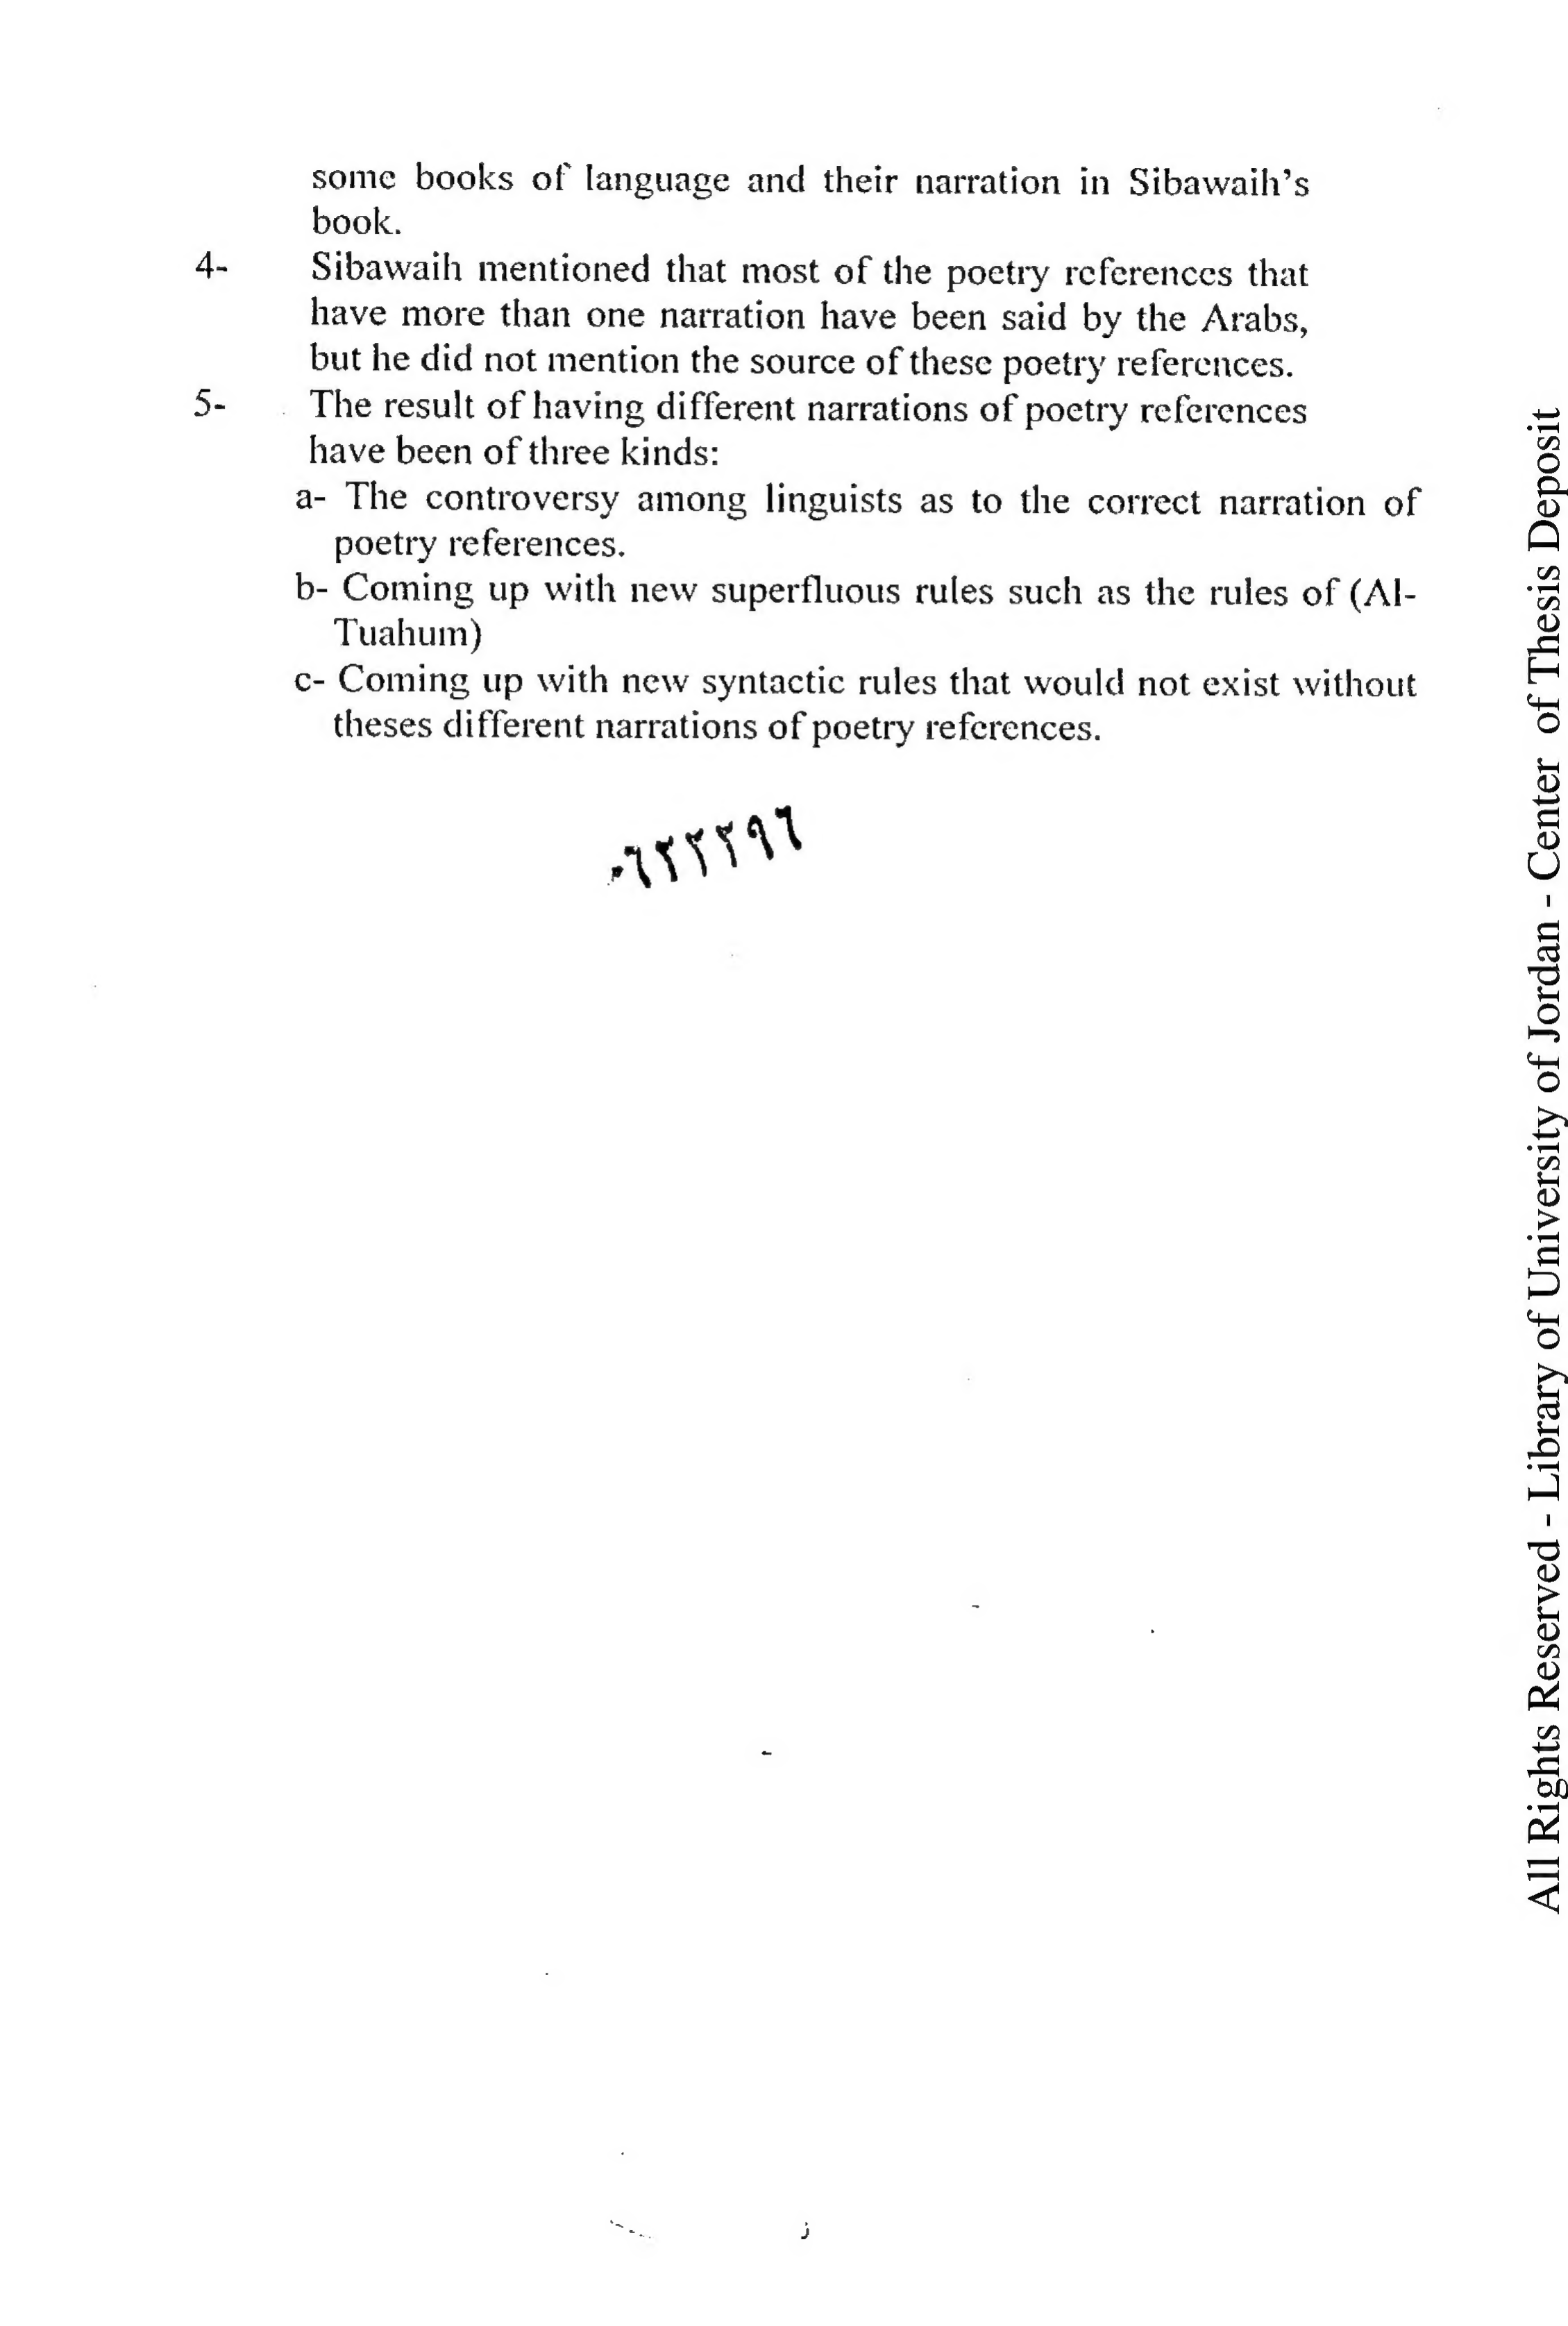 some books of language and their narration in Sibawaih's
book.
4- Sibawaih mentioned that most of the poetry references that
have more than one narration have been said by the Arabs,
but he did not mention the source of these poetry references.
5- The result of having different narrations of poetry references
have been of three kinds:
a- The controversy among linguists as to the correct narration of
poetry references.
b- Coming up with new superfluous rules such as the rules of (Al-
Tuahum)
c- Coming up with new syntactic rules that would not exist without
theses different narrations of poetry references.
٠٦٢٢٢٩٦
ز
All Rights Reserved - Library of University of Jordan - Center of Thesis Deposit